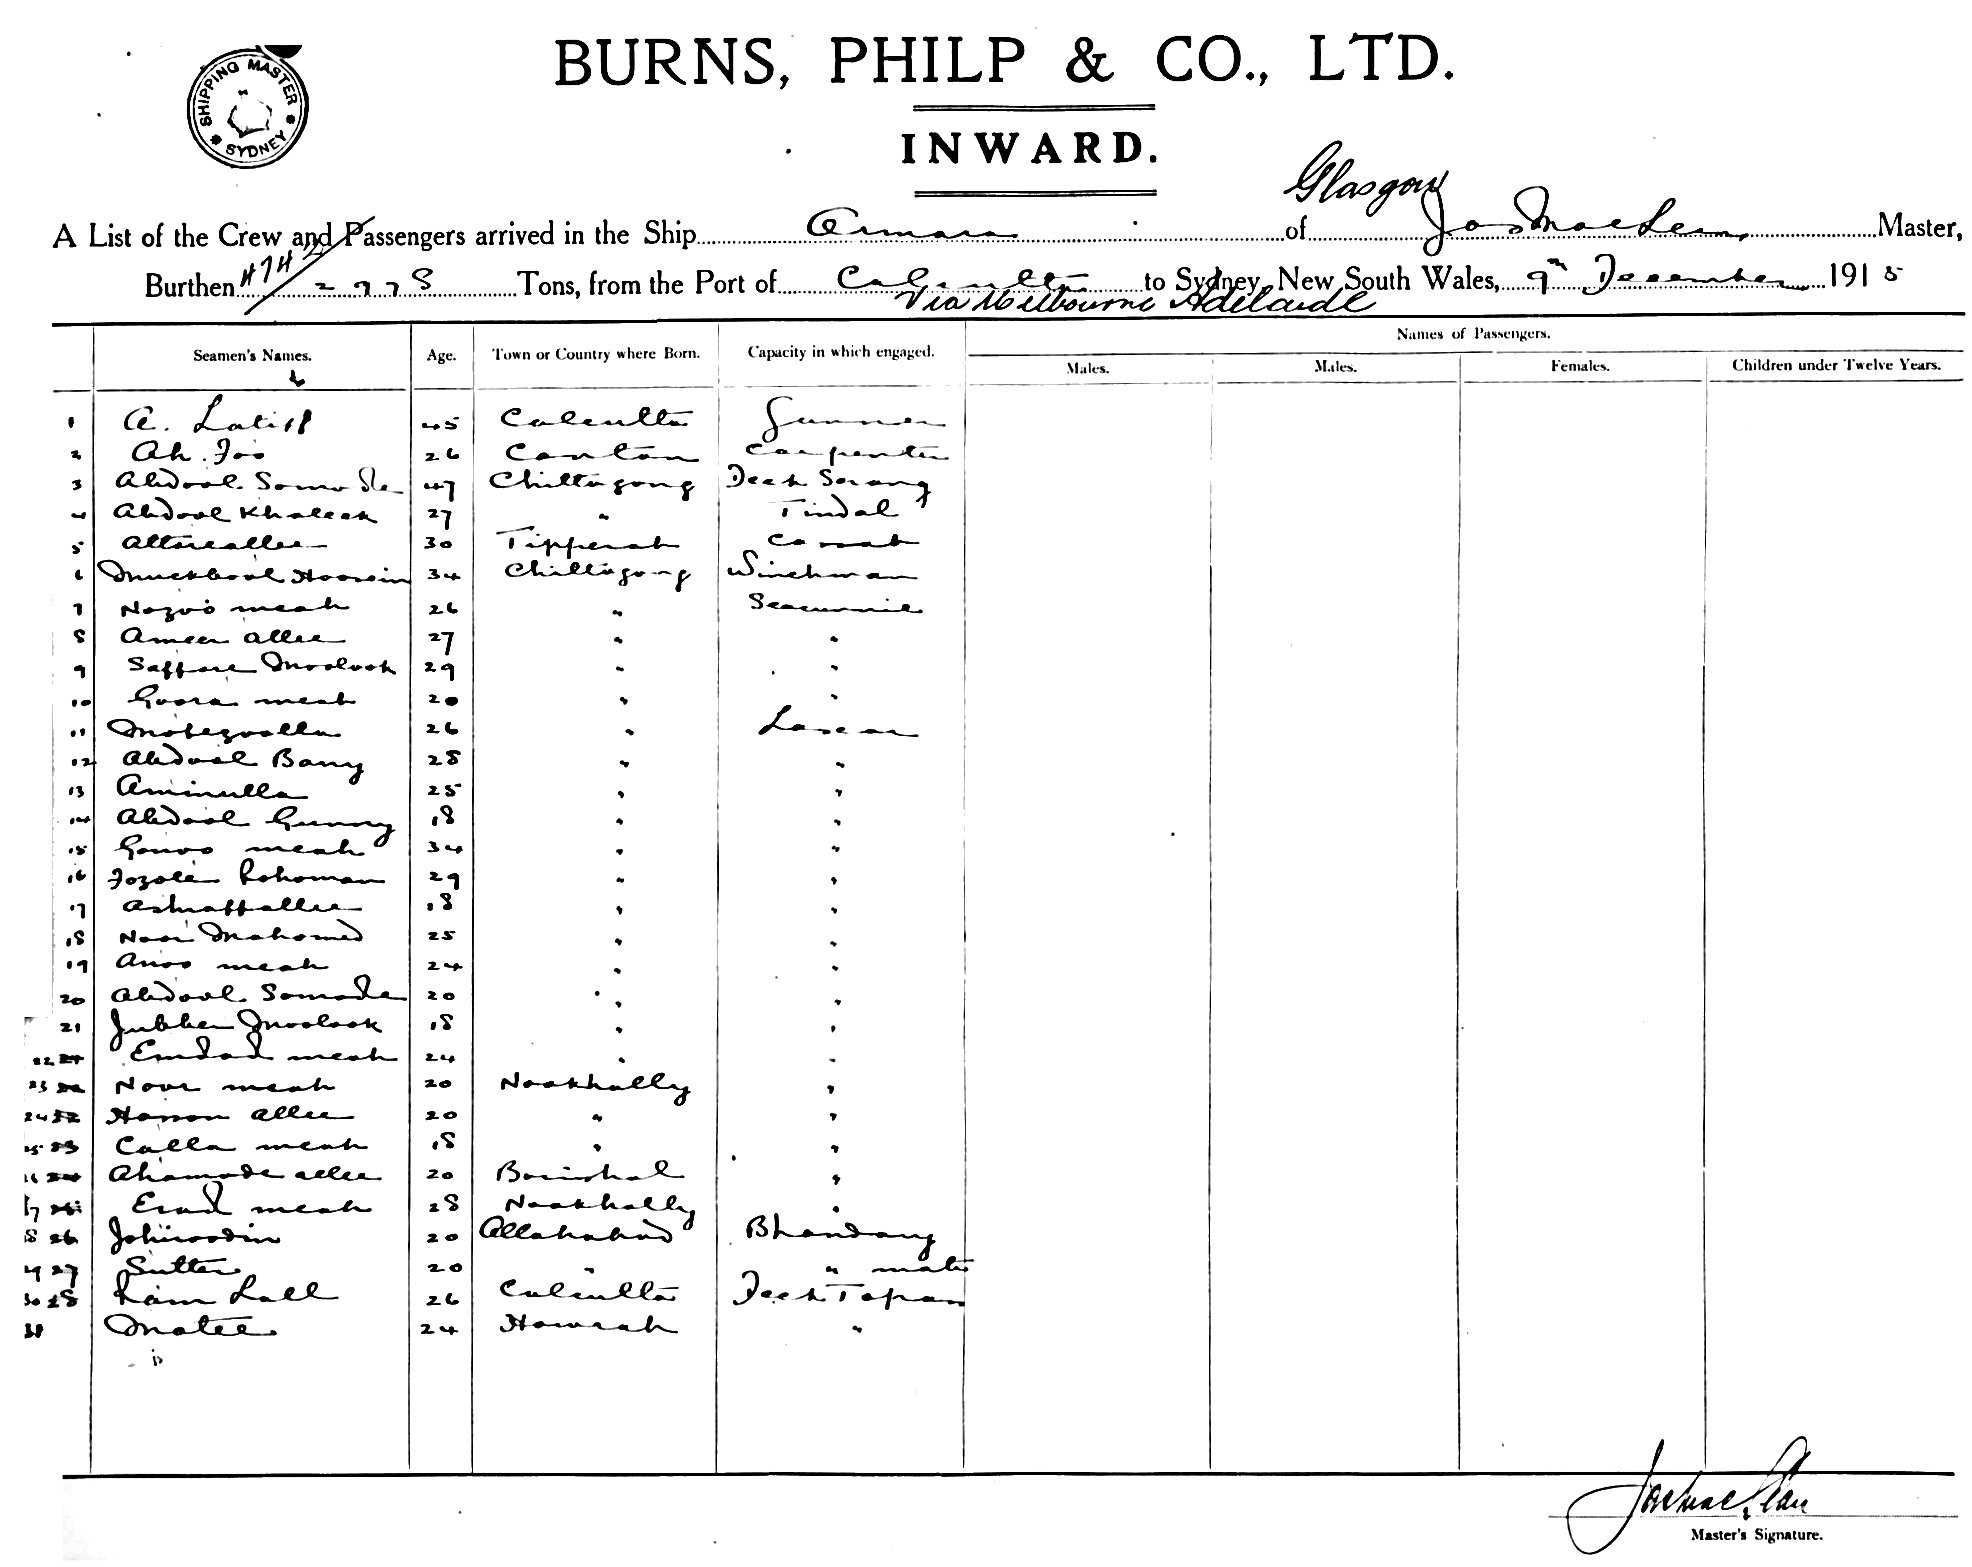 BURNS, PHILP & CO., LTD.
SHIPPING MASTER SYDNEY
INWARD.
Glasgow
A List of the Crew and Passengers arrived in the Ship Armara of Jas MacLean Master,
Burthen 4742/2978 Tons, from the Port of Calcutta to Sydney, New South Wales, 9th December 1915
Via Melbourne Adelaide
Names of Passengers.
Seamen's Names. Age. Town or Country where Born. Capacity in which engaged. Males. Males. Females. Children under Twelve Years.
1 A. Latiff 45 Calcutta Gunner
2 Ah. Foo 26 Canton Carpenter
3 Abdool Somode 47 Chittagong Deck Serang
4 Abdool Khaleek 27 " Tindal
5 Altareallee 30 Tipperah Cassab
6 Muckbool Hoosein 34 Chittagong Winchman
7 Nozoo meah 26 " Seacunnie
8 Ameer allee 27 " "
9 Saffare Moolook 29 " "
10 Goora meah 20 " "
11 Motezvolla 26 " Lascar
12 Abdool Barry 28 " "
13 Aminulla 25 " "
14 Abdool Gunny 18 " "
15 Gonoo meah 34 " "
16 Fozole Rohoman 29 " "
17 Ashraffallee 18 " "
18 Noor Mahomed 25 " "
19 Anoo meah 24 " "
20 Abdool Somode 20 " "
21 Jubber Moolook 18 " "
22 Emdad meah 24 " "
23 Noor meah 20 Noakhally "
24 Honon allee 20 " "
25 Calla meah 18 " "
26 Ahamode allee 20 Borishal "
27 Erad meah 28 Noakhally "
28 26 20 Allahabad Bhandary
29 27 Sutter 20 " " mate
30 28 Ram Lall 26 Calcutta Deck Topas
31 Matee 24 Howrah "
Master's Signature.